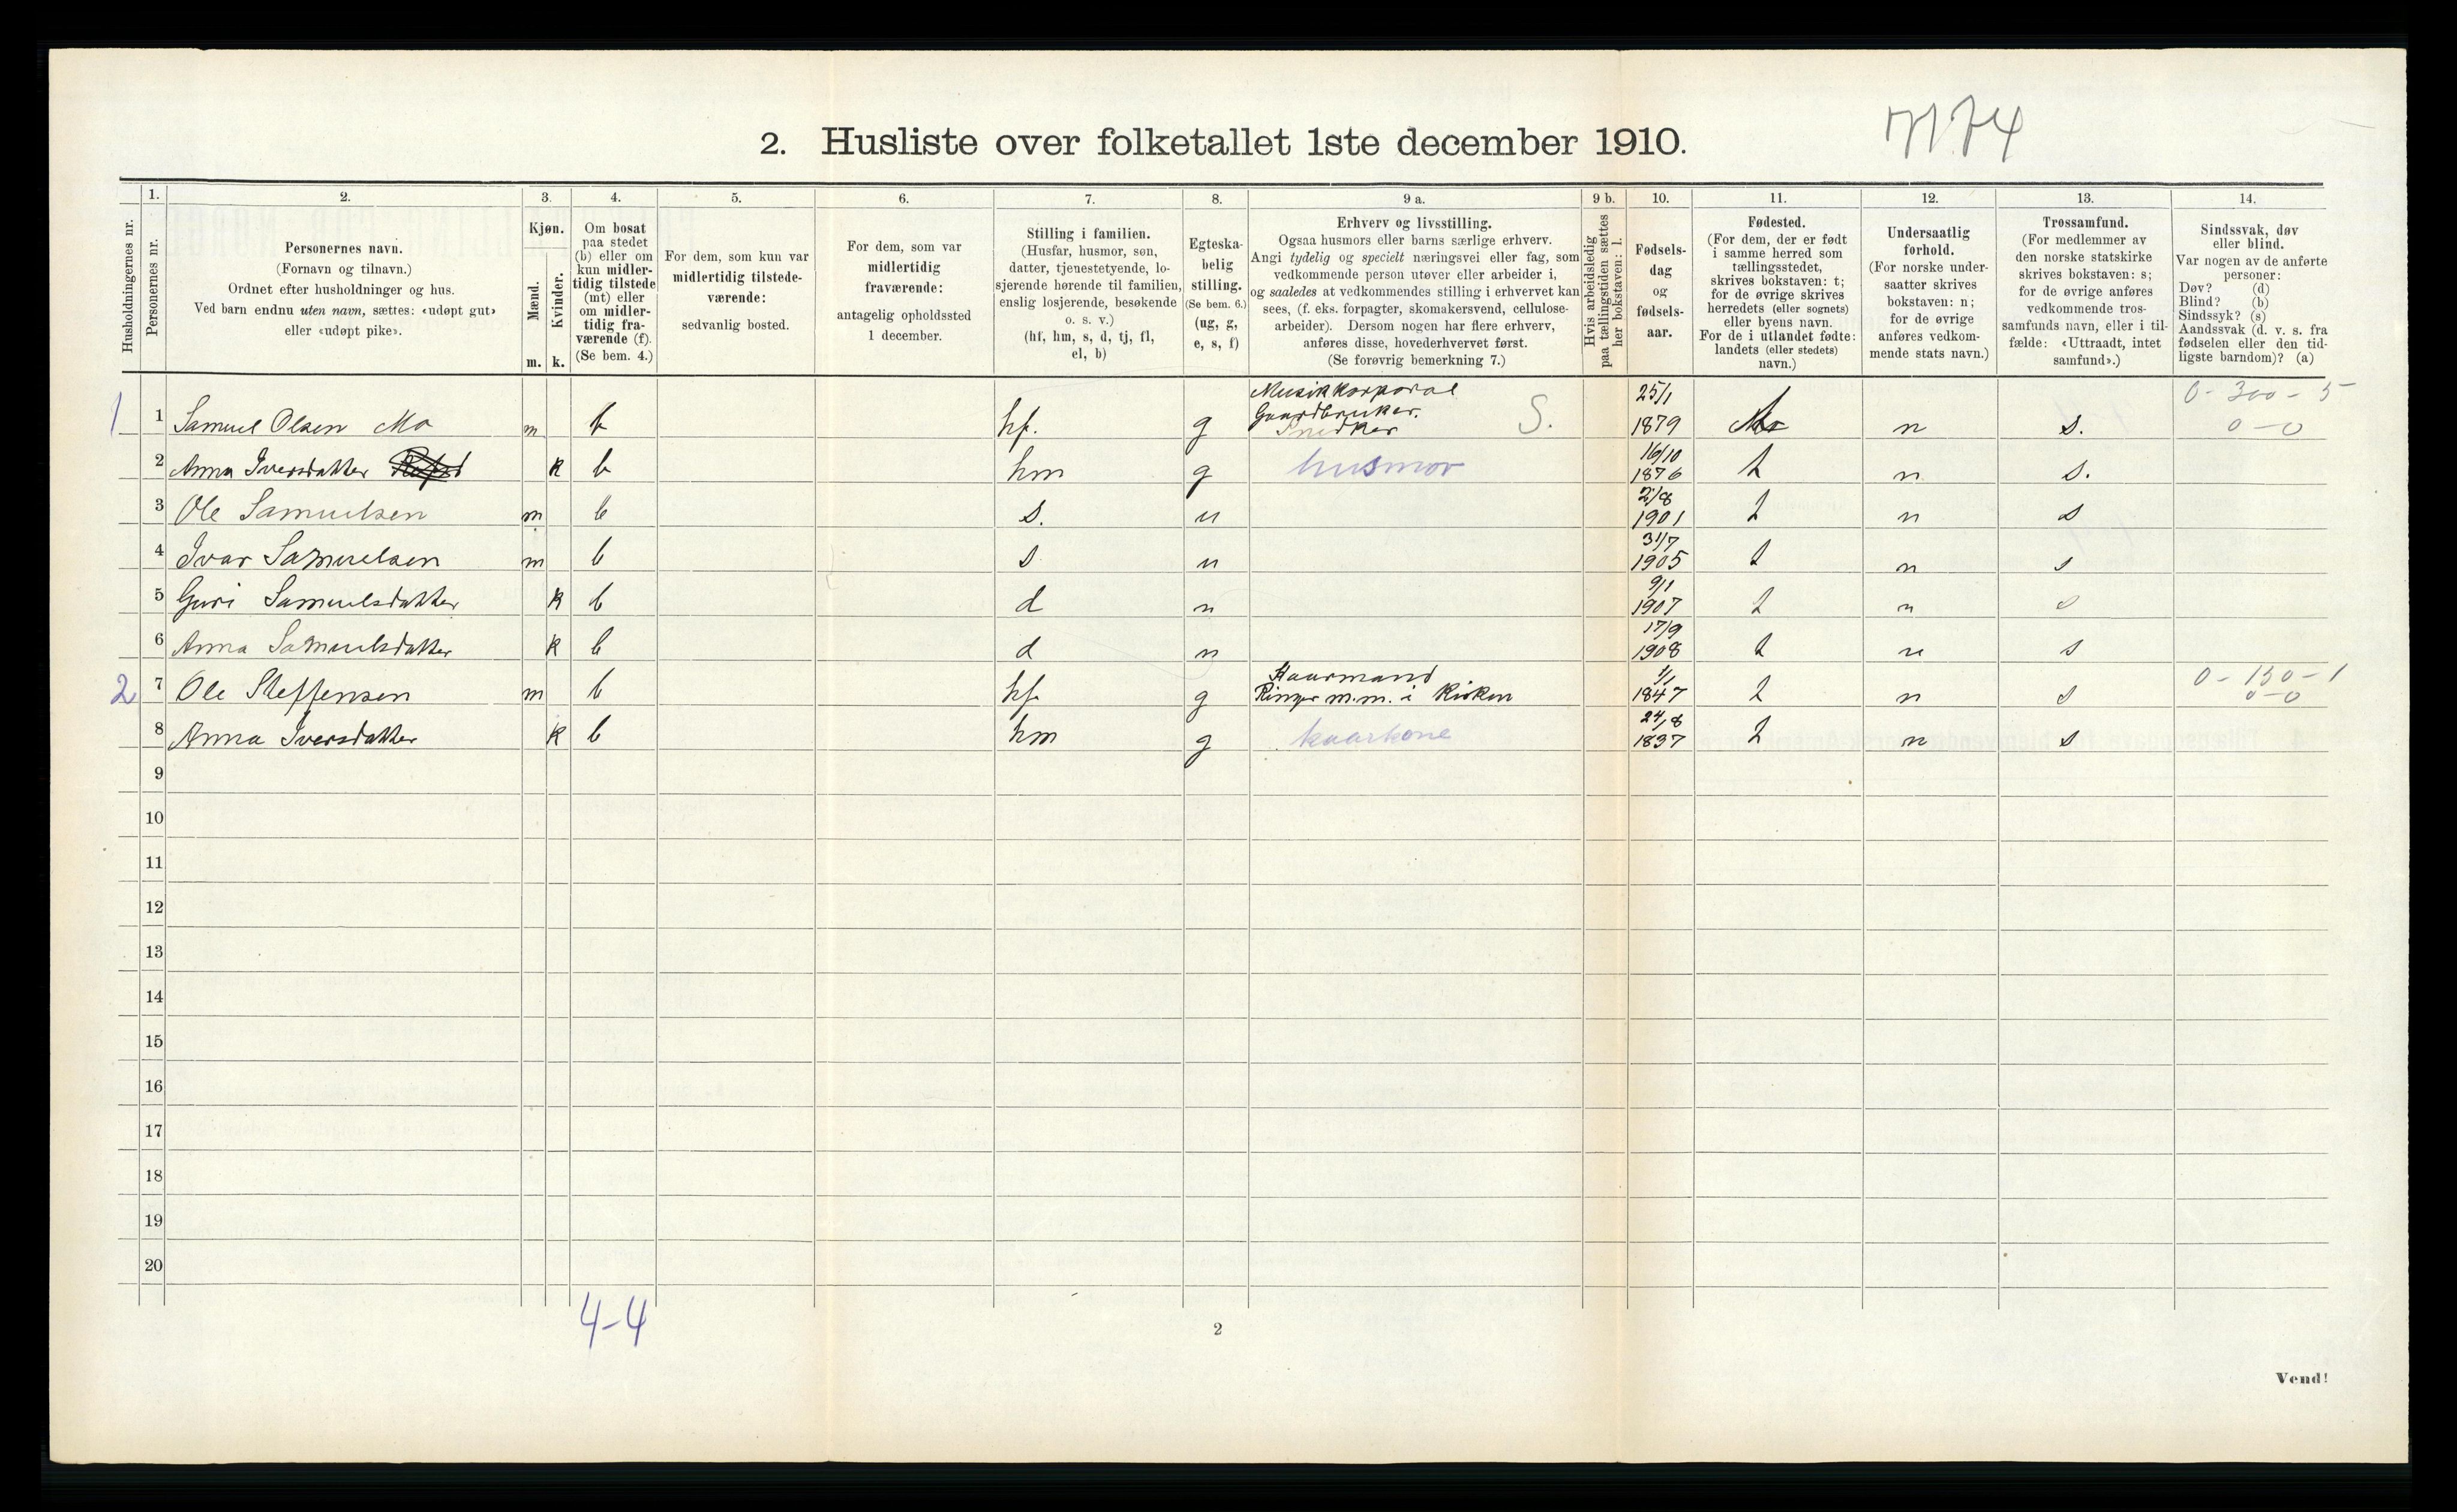 2. Husliste over folketallet 1ste december 1910.
Husholdningernes nr.
1. Personernes nr.
2. Personernes navn.
(Fornavn og tilnavn.)
Ordnet efter husholdninger og hus.
Ved barn endnu uten navn, sættes: «udøpt gut»
eller «udøpt pike».
3. Kjøn.
Mænd. m.
Kvinder. k.
4. Om bosat
paa stedet
(b) eller om
kun midler-
tidig tilstede
(mt) eller
om midler-
tidig fra-
værende (f).
(Se bem. 4.)
5. For dem, som kun var
midlertidig tilstede-
værende:
sedvanlig bosted.
6. For dem, som var
midlertidig
fraværende:
antagelig opholdssted
1 december.
7. Stilling i familien.
(Husfar, husmor, søn,
datter, tjenestetyende, lo-
sjerende hørende til familien,
enslig losjerende, besøkende
o. s. v.)
(hf, hm, s, d, tj, fl,
el, b)
8. Egteska-
belig
stilling.
(Se bem. 6.)
(ug, g,
e, s, f)
9 a. Erhverv og livsstilling.
Ogsaa husmors eller barns særlige erhverv.
Angi tydelig og specielt næringsvei eller fag, som
vedkommende person utøver eller arbeider i,
og saaledes at vedkommendes stilling i erhvervet kan
sees, (f. eks. forpagter, skomakersvend, cellulose-
arbeider). Dersom nogen har flere erhverv,
anføres disse, hovederhvervet først.
(Se forøvrig bemerkning 7.)
9 b. Hvis arbeidsledig
paa tællingstiden sættes
her bokstaven: l.
10. Fødsels-
dag
og
fødsels-
aar.
11. Fødested.
(For dem, der er født
i samme herred som
tællingsstedet,
skrives bokstaven: t;
for de øvrige skrives
herredets (eller sognets)
eller byens navn.
For de i utlandet fødte:
landets (eller stedets)
navn.)
12. Undersaatlig
forhold.
(For norske under-
saatter skrives
bokstaven: n;
for de øvrige
anføres vedkom-
mende stats navn.)
13. Trossamfund.
(For medlemmer av
den norske statskirke
skrives bokstaven: s;
for de øvrige anføres
vedkommende tros-
samfunds navn, eller i til-
fælde: «Uttraadt, intet
samfund».)
14. Sindssvak, døv
eller blind.
Var nogen av de anførte
personer:
Døv? (d)
Blind? (b)
Sindssyk? (s)
Aandssvak (d. v. s. fra
fødselen eller den tid-
ligste barndom)? (a)
1 1 Samuel Olsen Mo m b hf. g Musikkorporal Gaardbruker. Snedker S. 25/1 1879 n s. 0 - 300 - 5 0 - 0
2 Anna Iversdatter k b hm g husmor 16/10 1876 t n s.
3 Ole Samuelsen m b s. u 2/8 1901 t n s
4 Ivar Samuelsen m b s u 31/7 1905 t n s
5 Guri Samuelsdatter k b d u 9/1 1907 t n s
6 Anna Samuelsdatter k b d u 17/9 1908 t n s
2 7 Ole Steffensen m b hf g Kaarmand Ringer m.m. i Kirken 1/1 1847 t n s 0 - 130 - 1 0 - 0
8 Anna Iversdatter k b hm g kaarkone 24/8 1837 t n s
9
10
11
12
13
14
15
16
17
18
19
20
4-4
2
Vend!